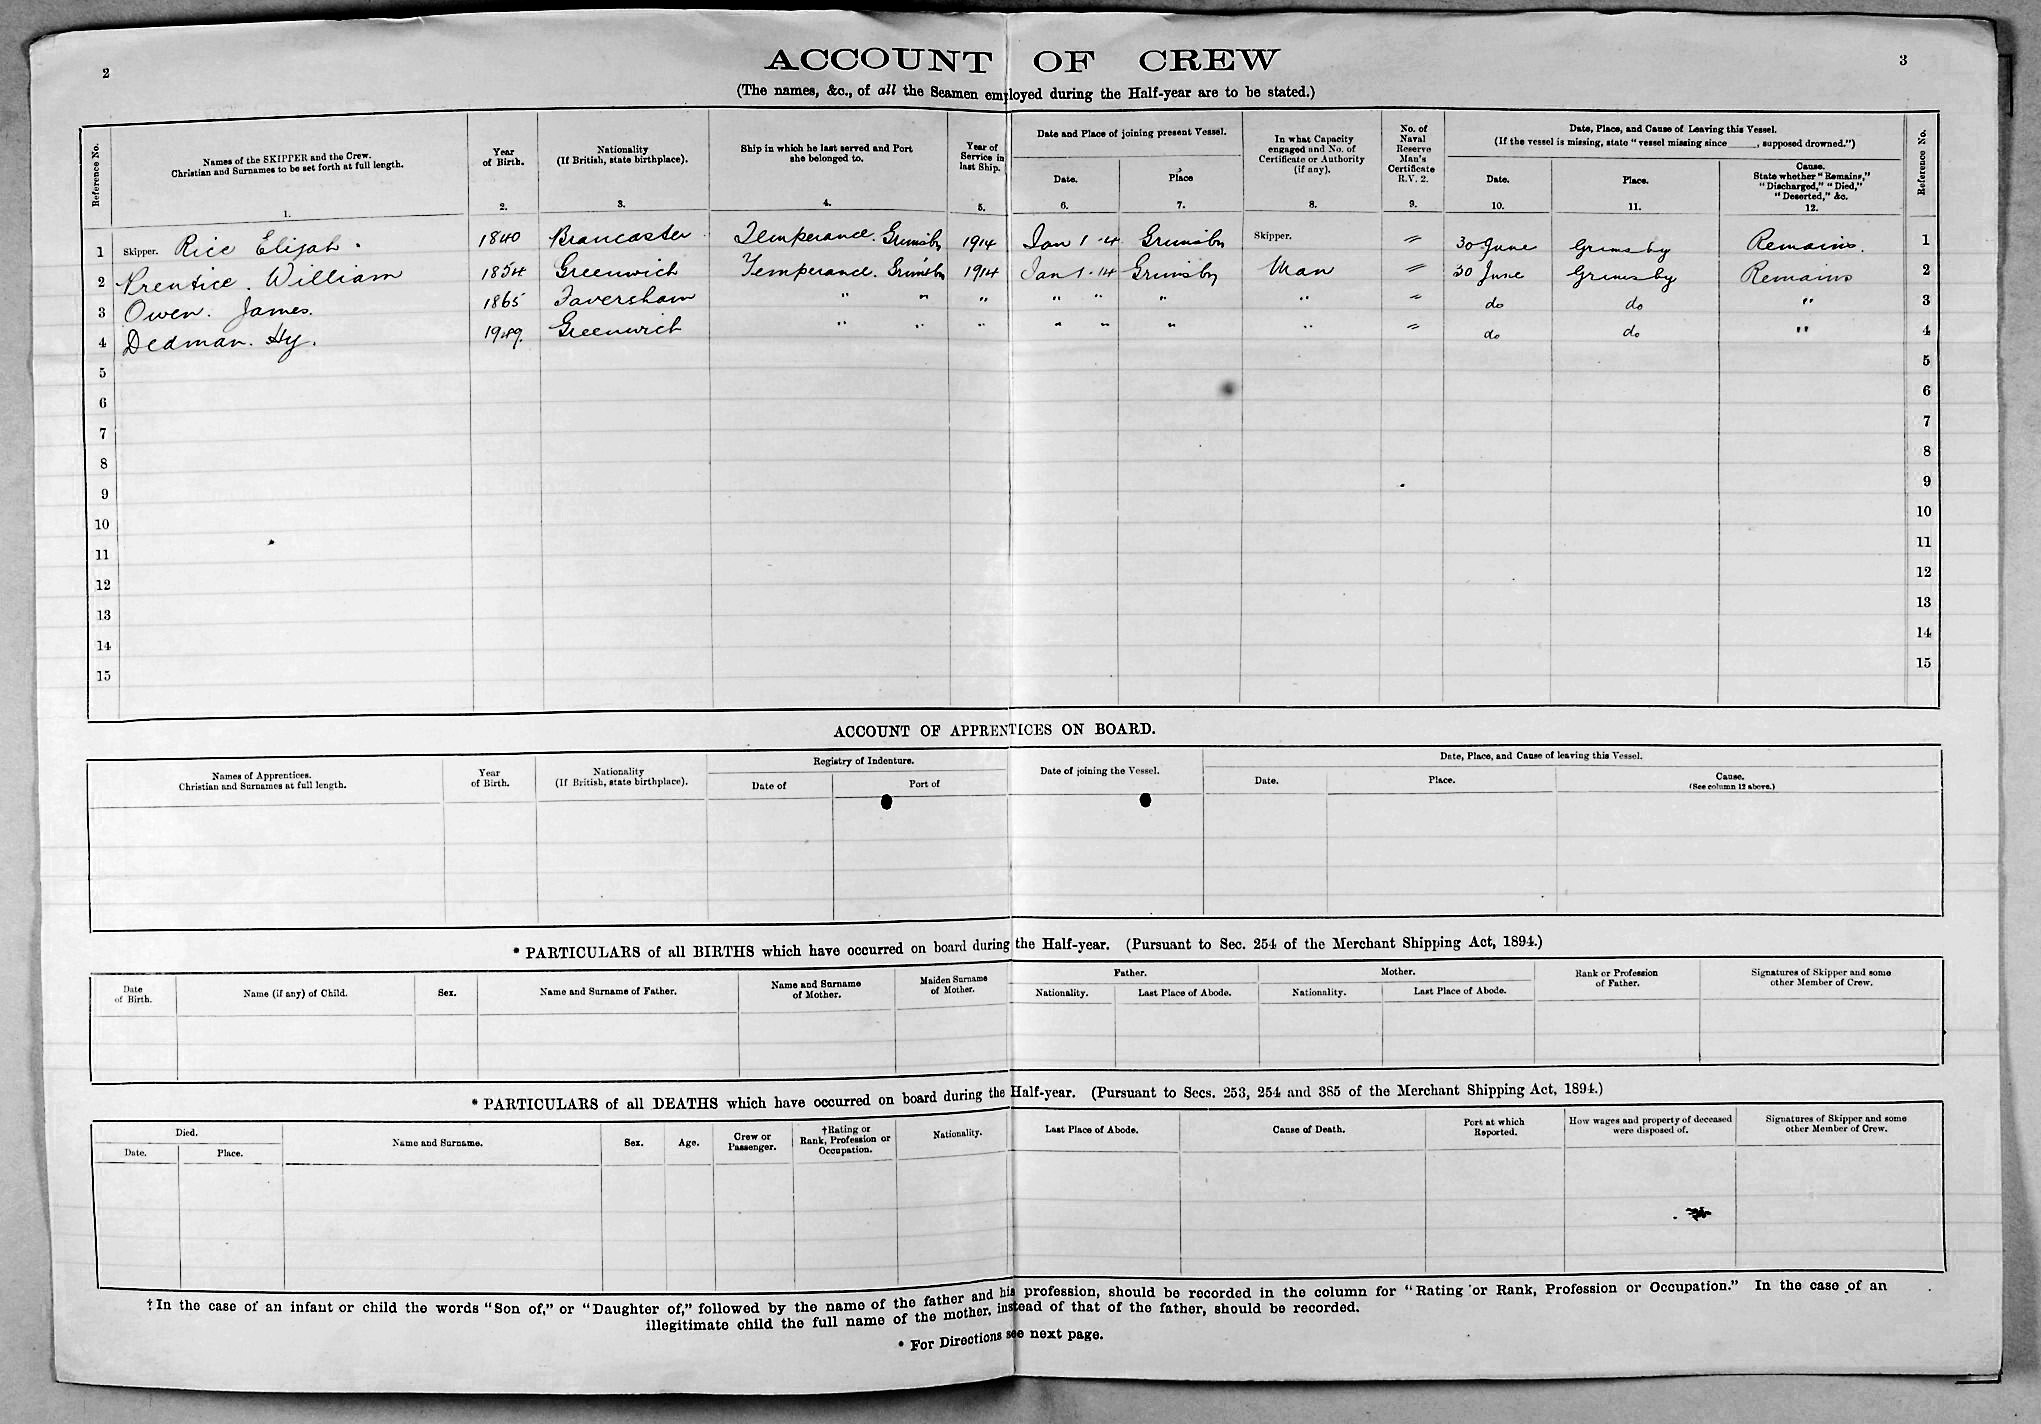 2
3
ACCOUNT OF CREW
(The names, &c., of all the Seamen employed during the Half-year are to be stated.)
Reference No.
Names of the SKIPPER and the Crew.
Christian and Surnames to be set forth at full length.
1.
Year
of Birth.
2.
Nationality
(If British, state birthplace).
3.
Ship in which he last served and Port
she belonged to.
4.
Year of
Service in
last Ship.
5.
Date and Place of joining present Vessel.
Date.
6.
Place
7.
In what Capacity
engaged and No. of
Certificate or Authority
(if any).
8.
No. of
Naval
Reserve
Man's
Certificate
R.V. 2.
9.
Date, Place, and Cause of Leaving this Vessel.
(If the vessel is missing, state "vessel missing since ______, supposed drowned.")
Date.
10.
Place.
11.
Cause.
State whether "Remains,"
"Discharged," "Died,"
"Deserted," &c.
12.
Reference No.
1 Skipper. Rice Elijah. 1840 Brancaster Temperance. Grimsby 1914 Jan 1 · 14 Grimsby Skipper. " 30 June Grimsby Remains. 1
2 Prentice. William 1854 Greenwich Temperance. Grimsby 1914 Jan 1 · 14 Grimsby Man " 30 June Grimsby Remains 2
3 Owen. James. 1865 Faversham " " " " " " " " do do " 3
4 Dedman. Hy. 1949. Greenwich " " " " " " " " do do " 4
5 5
6 6
7 7
8 8
9 9
10 10
11 11
12 12
13 13
14 14
15 15
ACCOUNT OF APPRENTICES ON BOARD.
Names of Apprentices.
Christian and Surnames at full length.
Year
of Birth.
Nationality
(If British, state birthplace).
Registry of Indenture.
Date of
Port of
Date of joining the Vessel.
Date, Place, and Cause of leaving this Vessel.
Date.
Place.
Cause.
(See column 12 above.)
* PARTICULARS of all BIRTHS which have occurred on board during the Half-year. (Pursuant to Sec. 254 of the Merchant Shipping Act, 1894.)
Date
of Birth.
Name (if any) of Child.
Sex.
Name and Surname of Father.
Name and Surname
of Mother.
Maiden Surname
of Mother.
Father.
Nationality.
Last Place of Abode.
Mother.
Nationality.
Last Place of Abode.
Rank or Profession
of Father.
Signatures of Skipper and some
other Member of Crew.
* PARTICULARS of all DEATHS which have occurred on board during the Half-year. (Pursuant to Secs. 253, 254 and 385 of the Merchant Shipping Act, 1894.)
Died.
Date.
Place.
Name and Surname.
Sex.
Age.
Crew or
Passenger.
†Rating or
Rank, Profession or
Occupation.
Nationality.
Last Place of Abode.
Cause of Death.
Port at which
Reported.
How wages and property of deceased
were disposed of.
Signatures of Skipper and some
other Member of Crew.
†In the case of an infant or child the words "Son of," or "Daughter of," followed by the name of the father and his profession, should be recorded in the column for "Rating or Rank, Profession or Occupation." In the case of an
illegitimate child the full name of the mother, instead of that of the father, should be recorded.
* For Directions see next page.